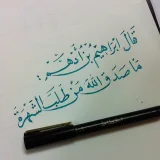 قال إبراهيم بن أدهم :
ما صدق الله من طلب الشهرة